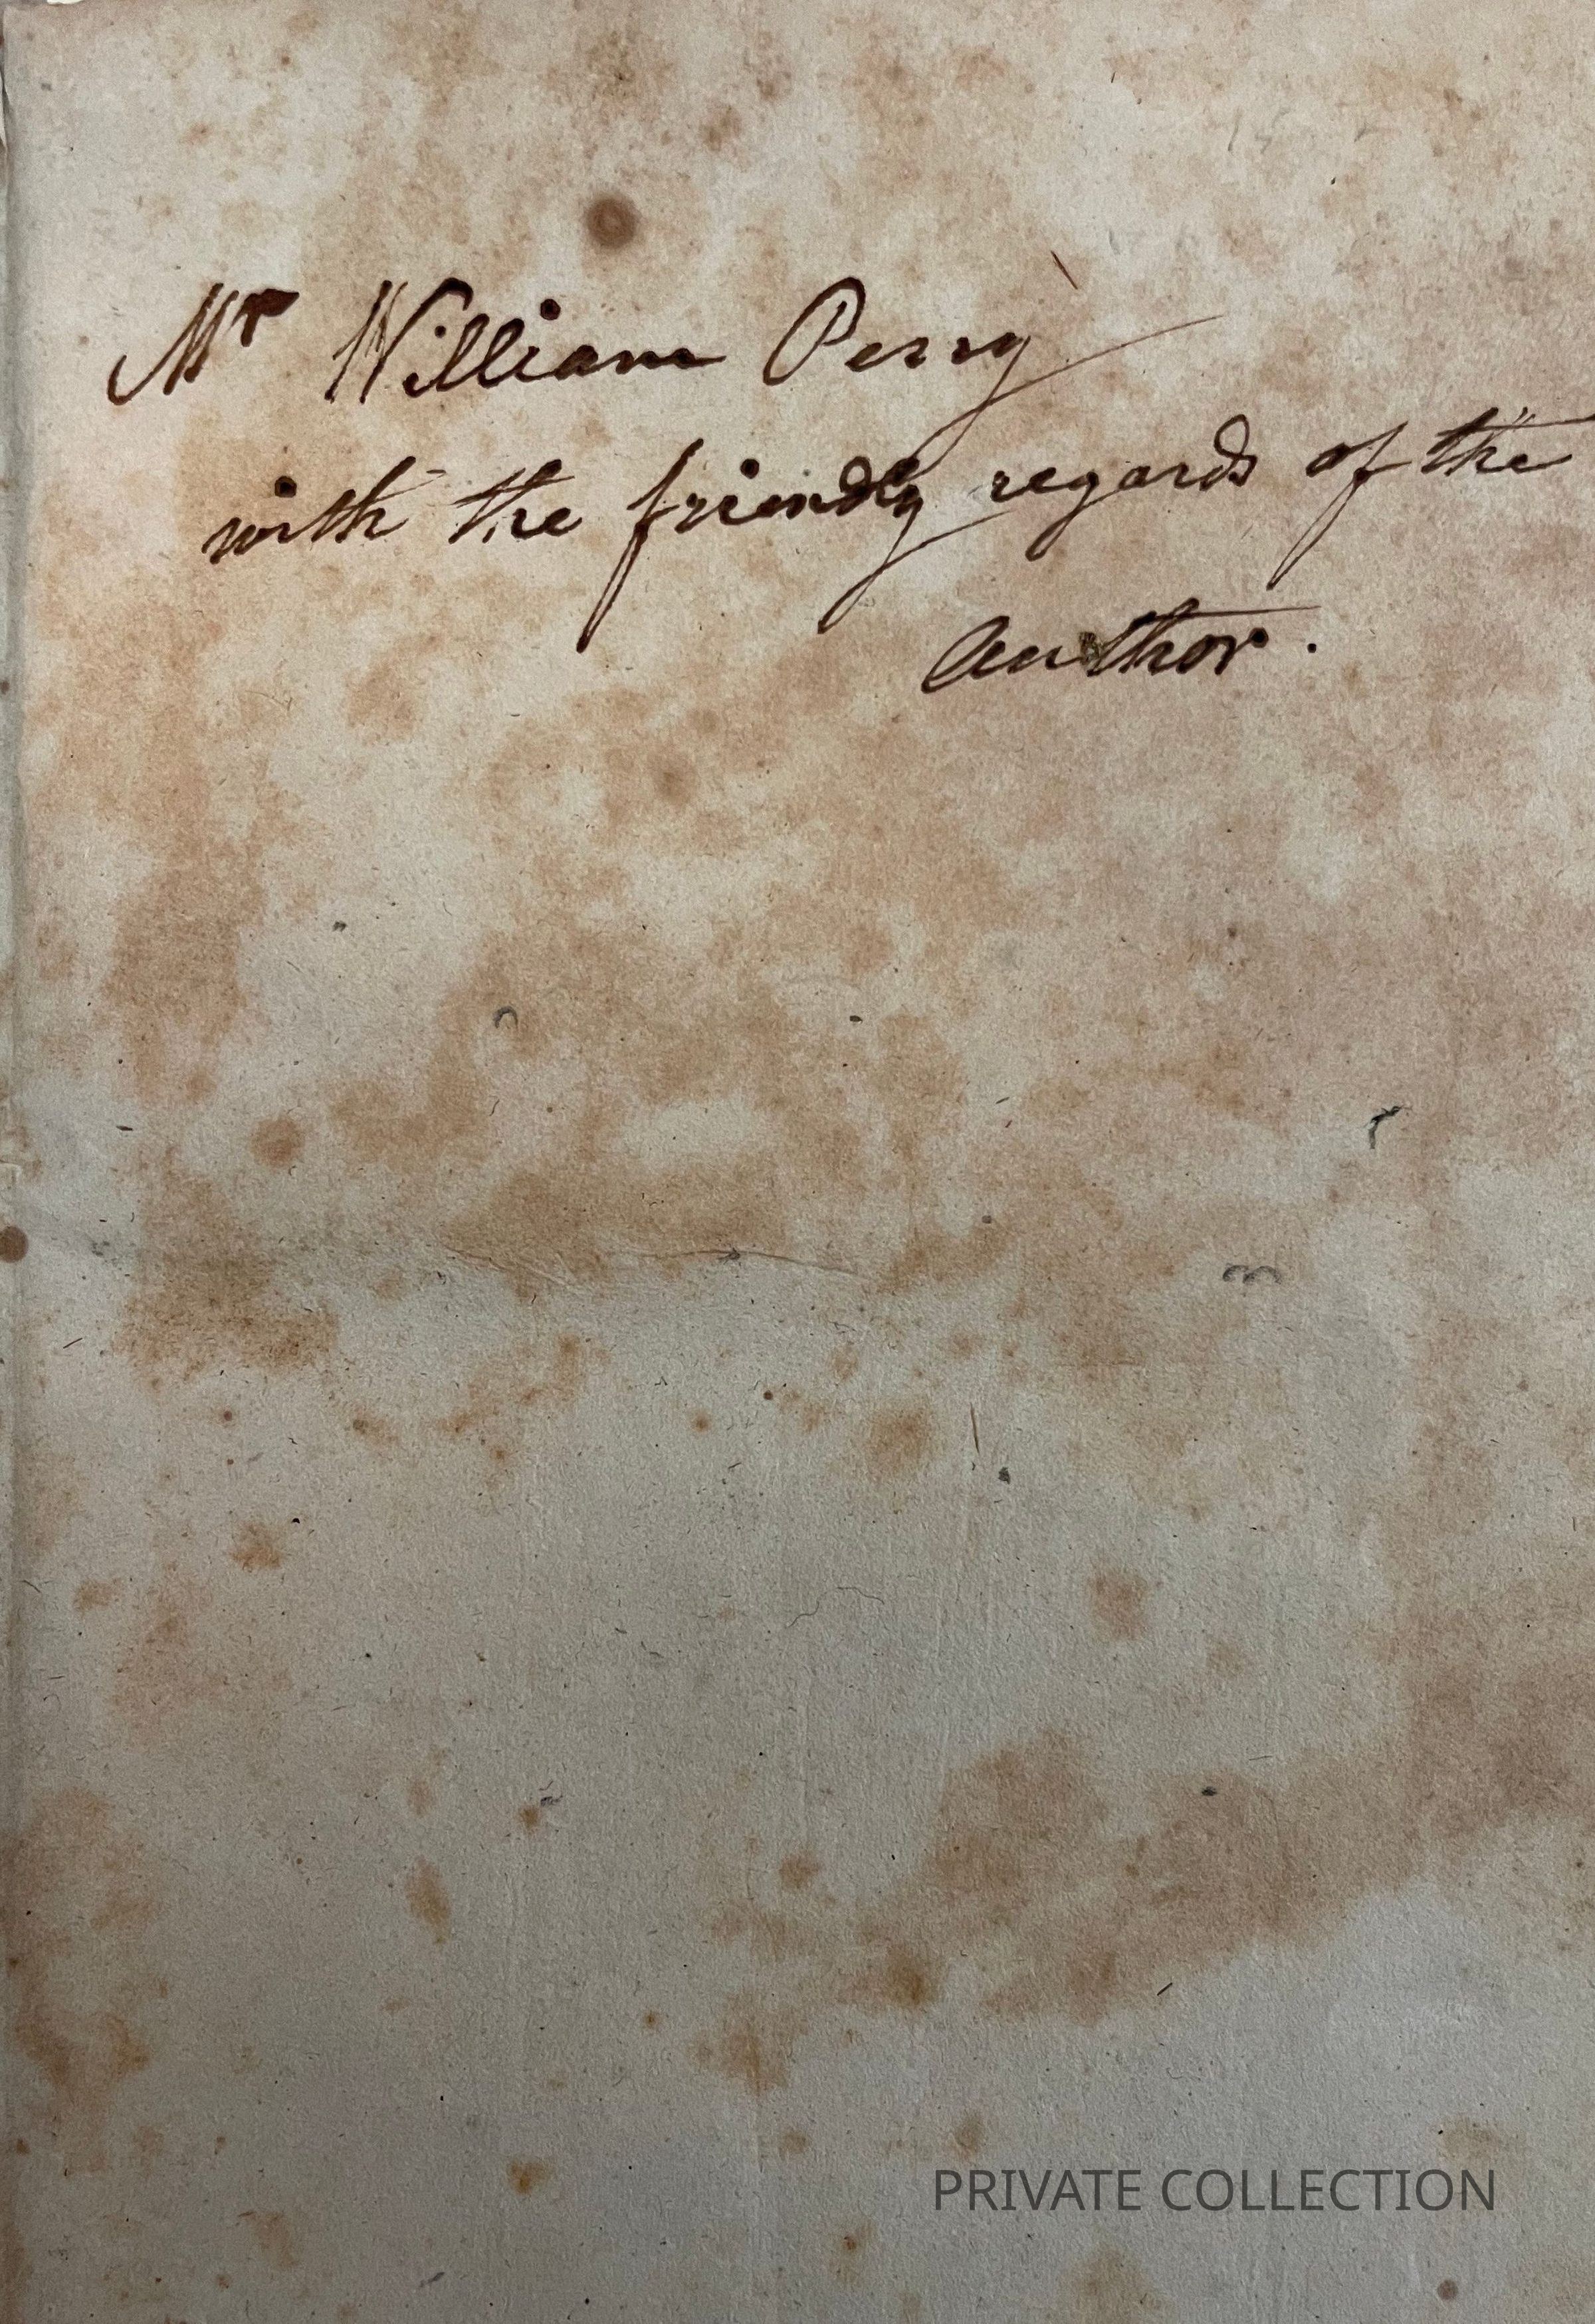 Mr William Perry
with the friendly regards of the
author.
PRIVATE COLLECTION